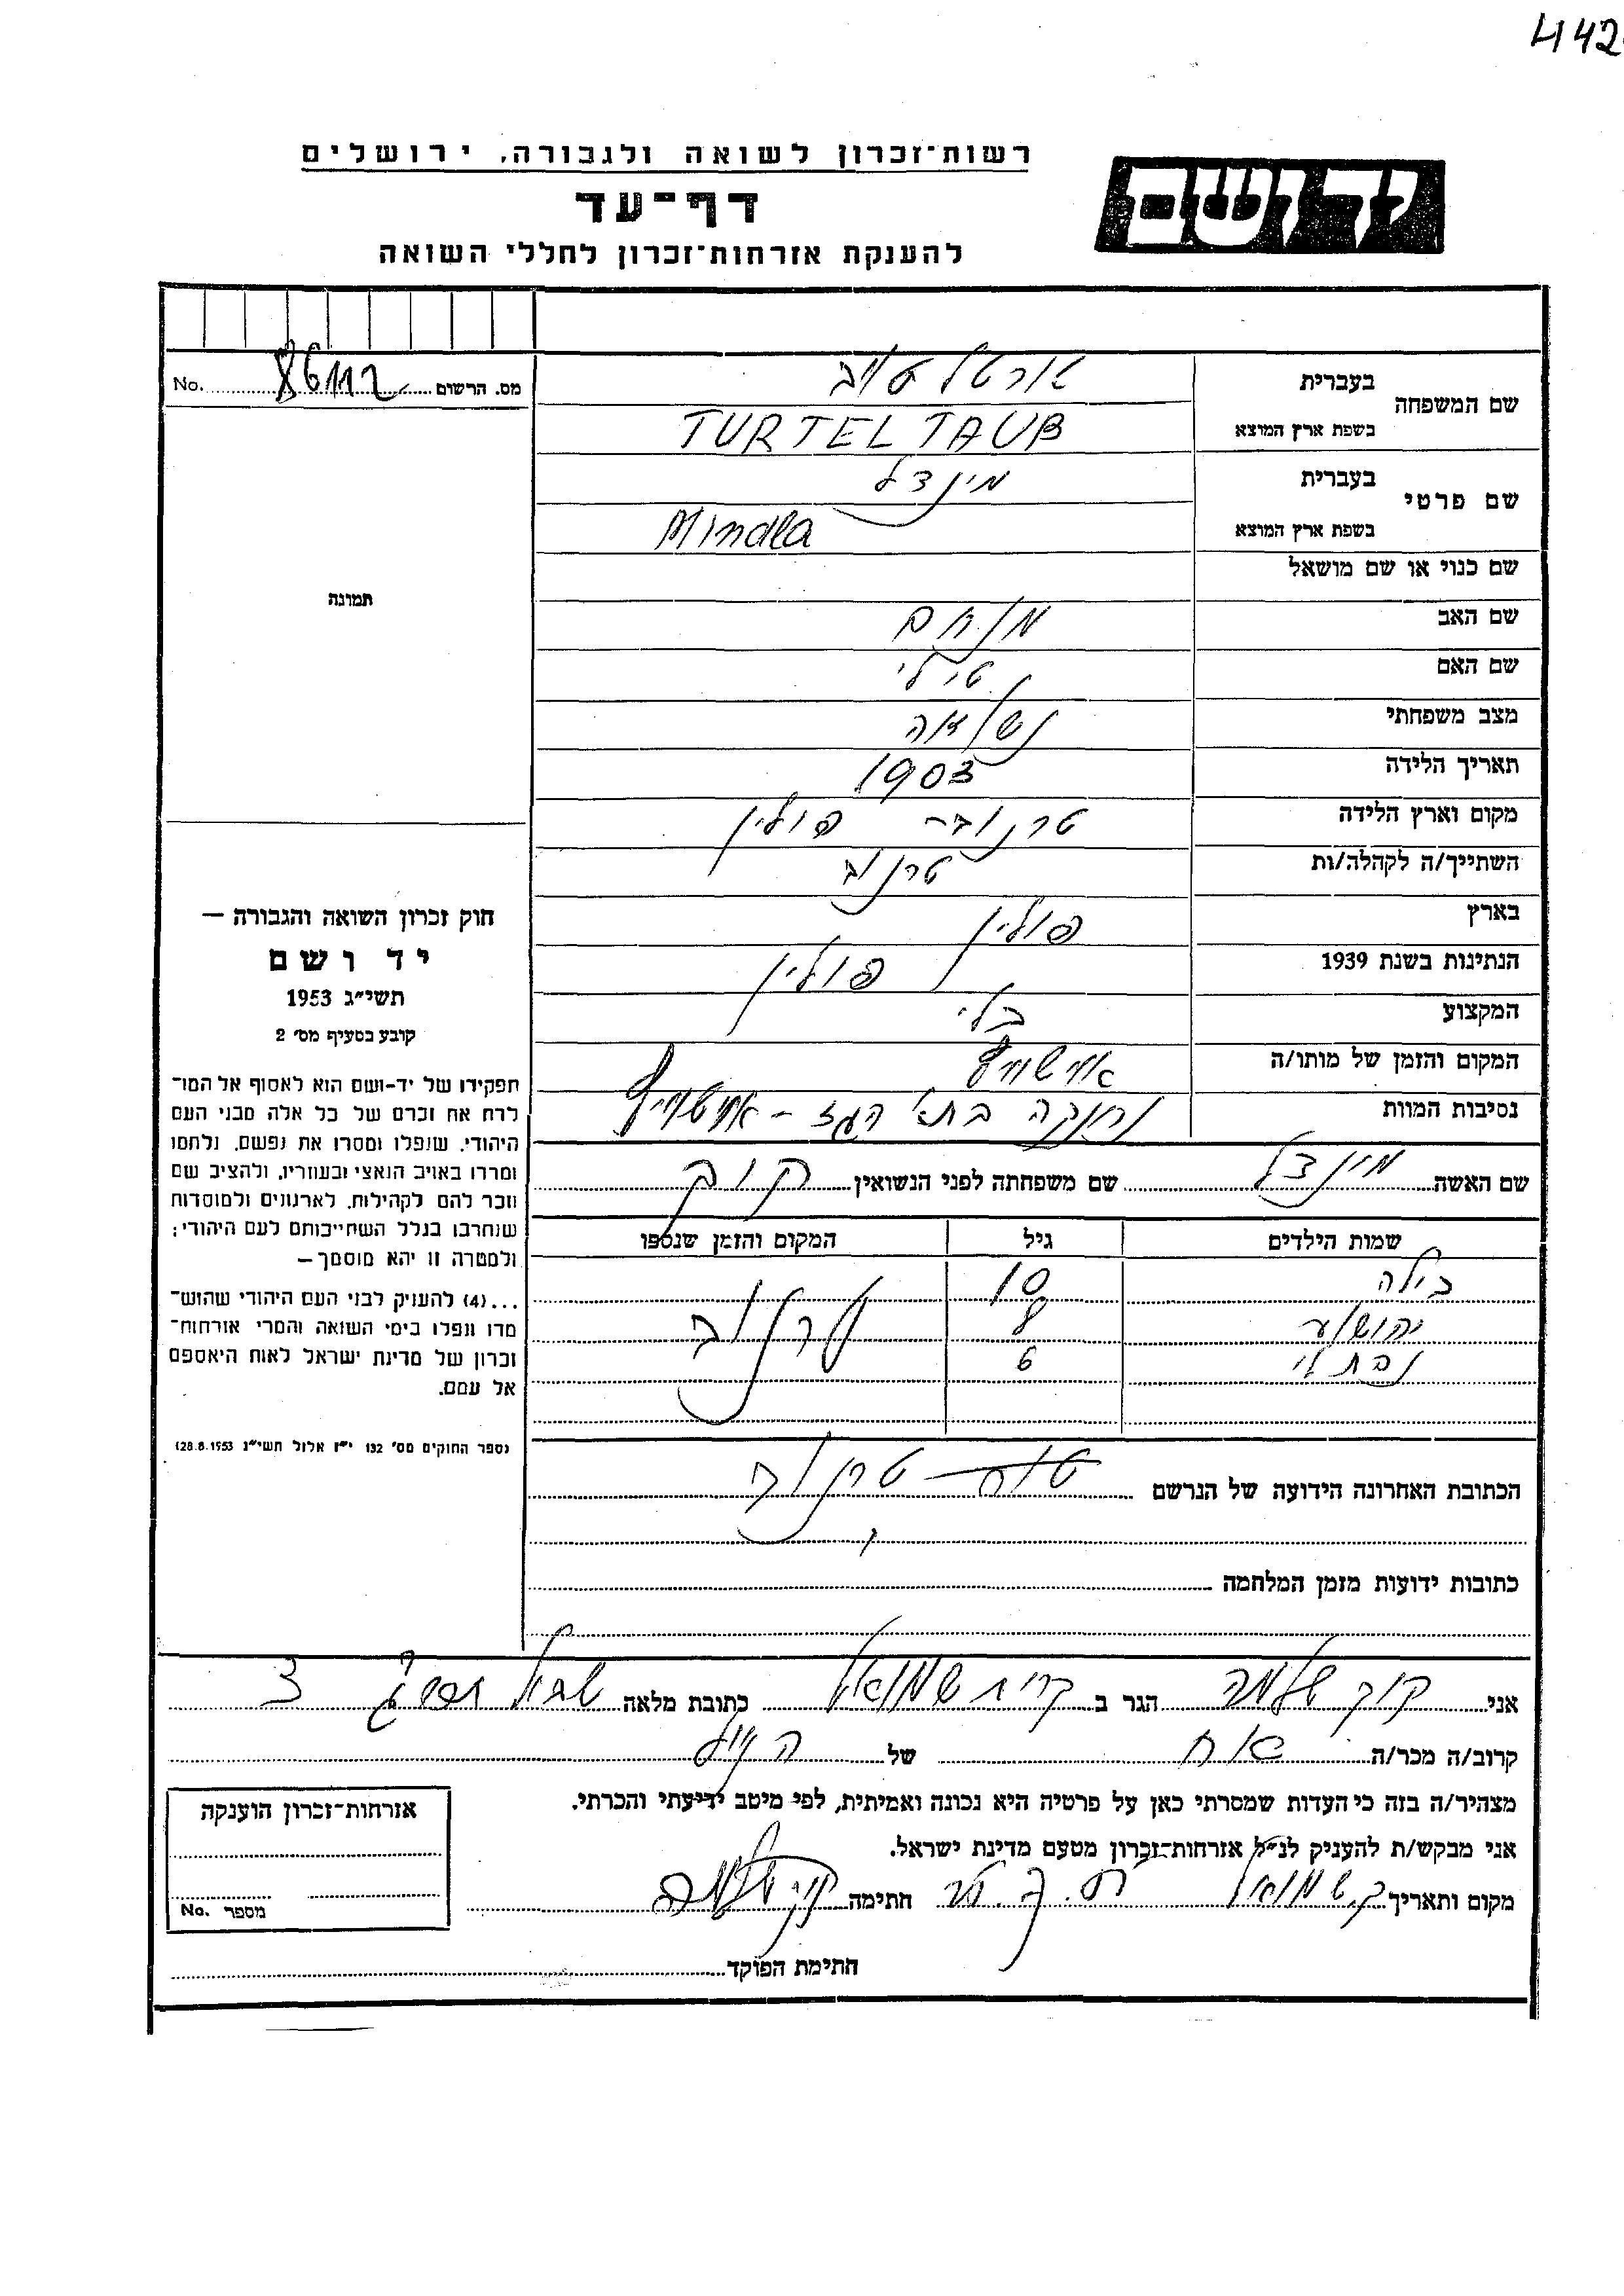 442
רשות־זכרון לשואה ולגבורה, ירושלים
דף־עד
להענקת אזרחות־זכרון לחללי השואה
יד ושם
מס. הרשום 86112 No.
שם המשפחה
בעברית טורטלטויב
בשפת ארץ המוצא TURTELTAUB
שם פרטי
בעברית מינדל
בשפת ארץ המוצא Mindla
תמונה
שם כנוי או שם מושאל
שם האב מנחם
שם האם טילי
מצב משפחתי נשואה
תאריך הלידה 1903
מקום וארץ הלידה טרנוב - פולין
השתייך/ה לקהלה/ות טרנוב
בארץ פולין
הנתינות בשנת 1939 פולין
המקצוע בלי
המקום והזמן של מותו/ה אושוויץ
נסיבות המוות נחנקה בתאי הגז - אושוויץ
שם האשה מינדל שם משפחתה לפני הנשואין קוק
שמות הילדים גיל המקום והזמן שנספו
בילה 10 טרנוב
יהושוע 8
נפתלי 6
חוק זכרון השואה והגבורה —
יד ושם
תשי״ג 1953
קובע בסעיף מס׳ 2
תפקידו של יד-ושם הוא לאסוף אל המו־
לדת את זכרם של כל אלה מבני העם
היהודי, שנפלו ומסרו את נפשם, נלחמו
ומרדו באויב הנאצי ובעוזריו, ולהציב שם
וזכר להם לקהילות, לארגונים ולמוסדות
שנחרבו בגלל השתייכותם לעם היהודי;
ולמטרה זו יהא מוסמך—
...(4) להעניק לבני העם היהודי שהוש־
מדו ונפלו בימי השואה והמרי אזרחות־
זכרון של מדינת ישראל לאות היאספם
אל עמם.
(ספר החוקים מס׳ 132 י״ז אלול תשי״ג 28.8.1953)
הכתובת האחרונה הידועה של הנרשם טרנוב
כתובות ידועות מזמן המלחמה
אני קוק שלמה הגר ב קרית שמואל כתובת מלאה 3
קרוב/ה מכר/ה אח של הנ״ל
מצהיר/ה בזה כי העדות שמסרתי כאן על פרטיה היא נכונה ואמיתית, לפי מיטב ידיעתי והכרתי.
אני מבקש/ת להעניק לנ״ל אזרחות־זכרון מטעם מדינת ישראל.
מקום ותאריך ק. שמואל חתימה קוק שלמה
חתימת הפוקד
אזרחות־זכרון הוענקה
מספר No.